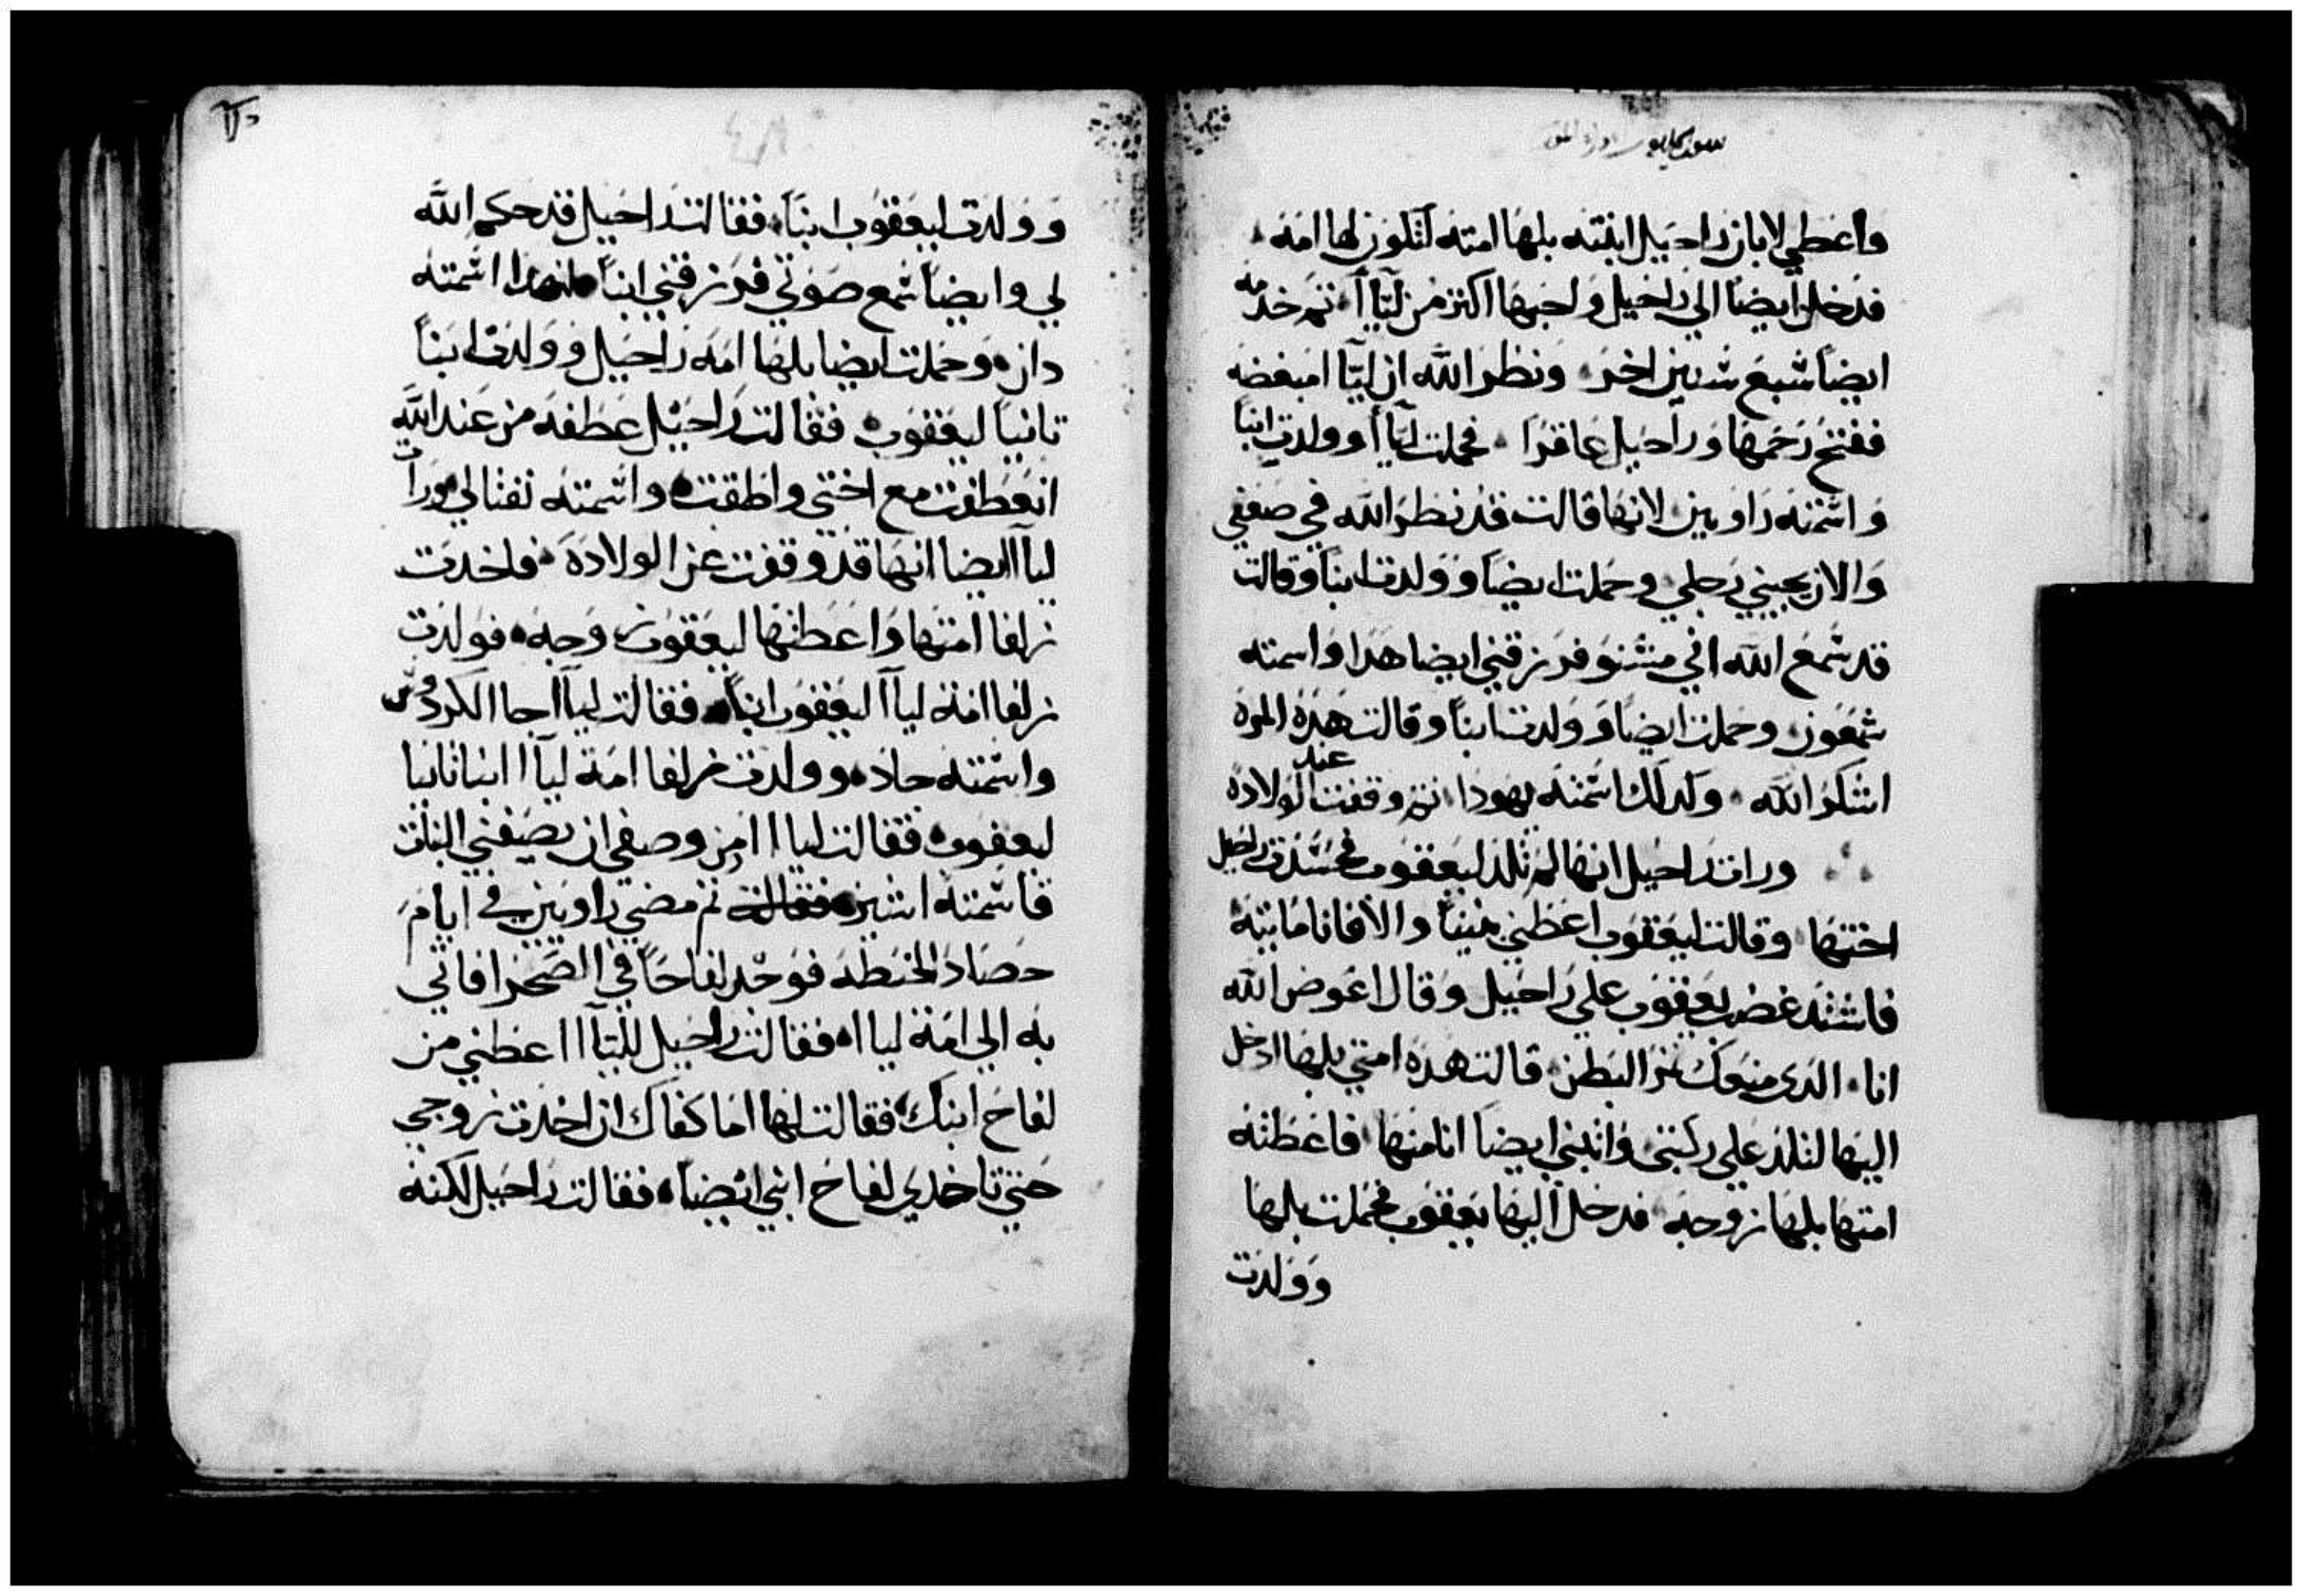 واعطي لابان راحيل ابنته بلها امته لتكون لها امة
فدخل ايضا الي راحيل واحبها اكتر من ليّاأ تم خدمه
ايضاً سبع سنين اخر ونظر الله ان ليّا امبغضه
ففتح رحمها وراحيل عاقرا فحملت ليّاأ وولدت ابناً
واسمته راوبين لانها قالت قد نظر الله في ضعفي
والان يحبني رجلي وحملت ايضاً وولدت ابناً وقالت
قد سمع الله اني منشنوه فرزقني ايضا هدا واسمته
شمعون وحملت ايضاً وولدت ابناً وقالت هده المره
اشكر الله ولدلك اسمته يهودا تم وقفت عند الولاده
ورات راحيل انها لم تلد ليعقوب فحسدت راحيل
اختها وقالت ليعقوب اعطني بنيناً والا فانا مايته
فاشتد غضب يعقوب علي راحيل وقال اعوض الله
انا الدى منعك تمر البطن قالت هده امتي بلها ادخل
اليها لتلد علي ركبتى وانبني ايضاً انا منها فاعطته
امتها بلها زوجه فدخل اليها يعقوب فحملت بلها
وولدت
وولدت ليعقوب ابناً فقالت راحيل قد حكم الله
لي وايضاً سمع صوتي فرزقني ابناً لهدا اسمته
دان وحملت ايضا بلها امة راحيل وولدت ابناً
تانياً ليعقوب فقالت راحيل عطفه من عند الله
انعطفت مع اختي واطقت واسمته نفتالي ورات
لياآ ايضا انها قد وقفت عن الولادة فاخدت
زلفا امتها واعطتها ليعقوب زوجه فولدت
زلفا امة لياآ ليعقوب ابناً فقالت لياآ جا الكردوس
واسمته حاد وولدت زلفا امة لياآ ابنا تانيا
ليعقوب فقالت لياا امن وصفي ان يصفني البنات
فاسمته اشير تم مضي راوبين في ايام
حصاد الحنطه فوجد لفاحاً في الصحرا فاتي
به الي امة لياا فقالت راحيل لليّاآ اعطني من
لفاح ابنك فقالت لها اما كفاك ان اخدت زوجي
حتي تاخدي لفاح ابني ايضاً فقالت راحيل لكنه